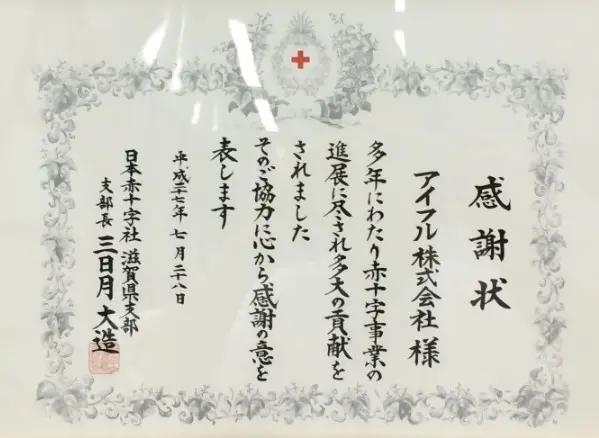 感謝状
アイフル株式会社 様
多年にわたり赤十字事業の
進展に尽され多大の貢献を
されました
そのご協力に心から感謝の意を
表します
平成二十七年 七月二十八日
日本赤十字社 滋賀県支部
支部長 三日月 大造